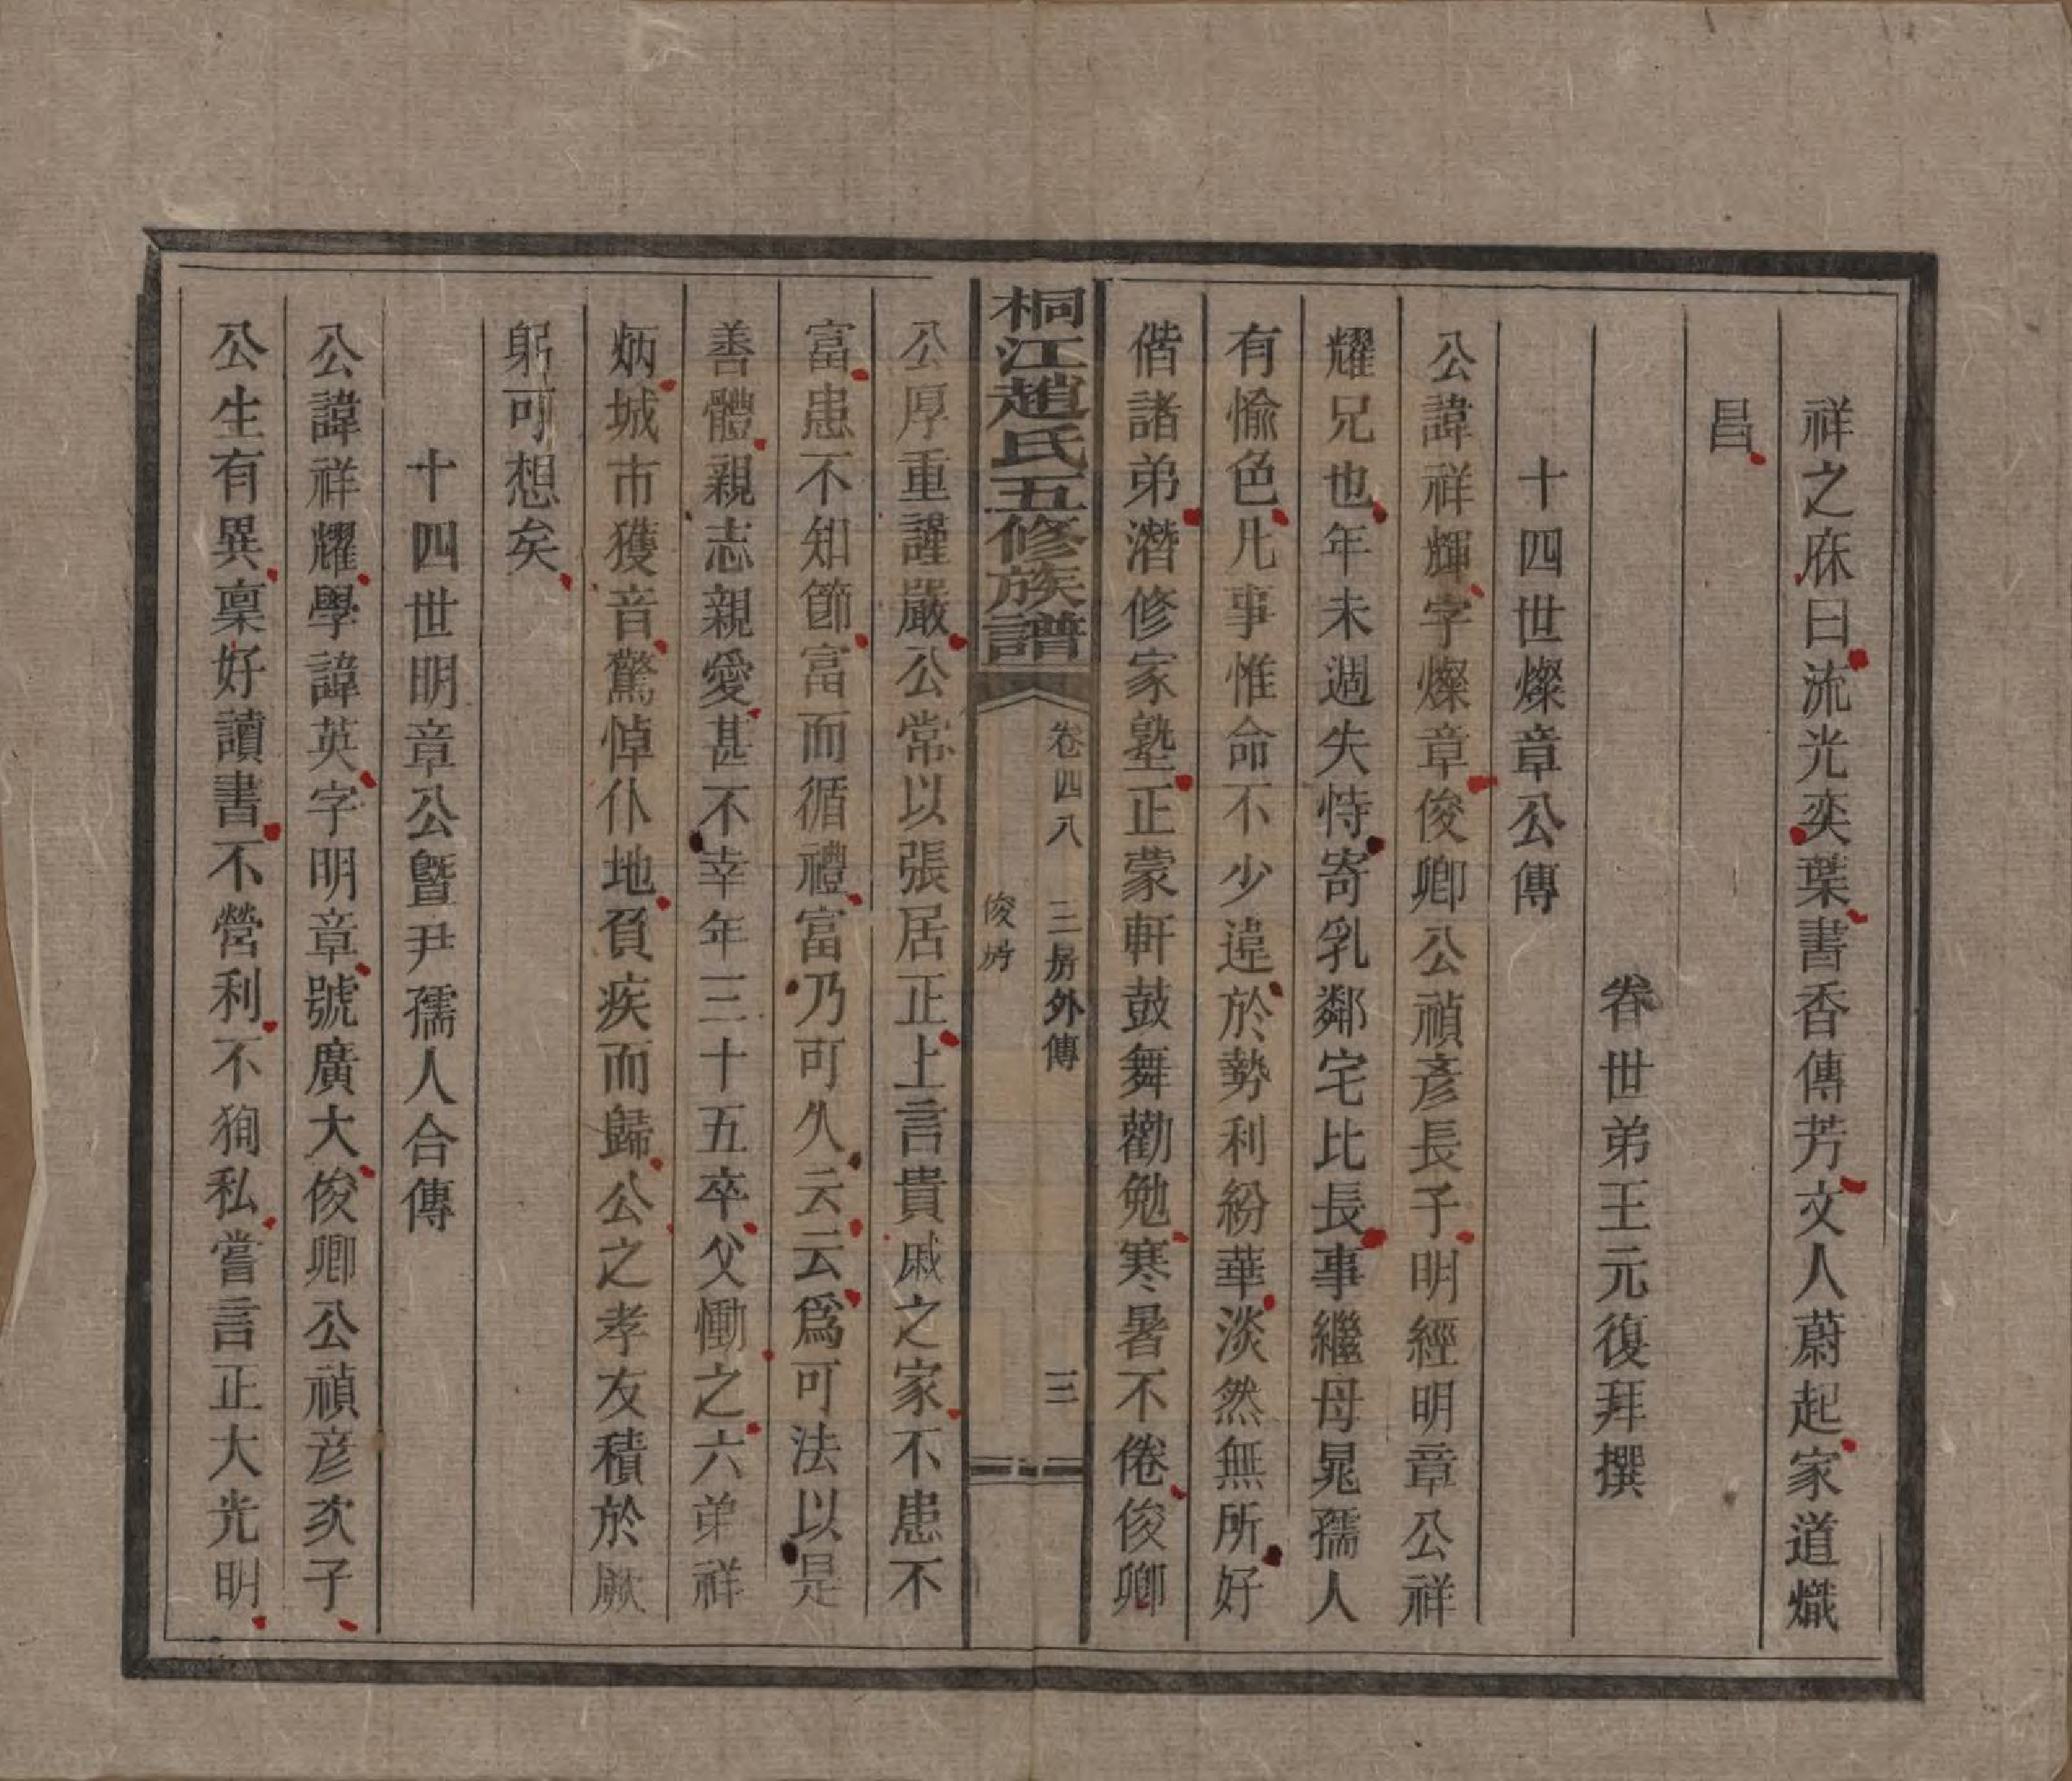 祥之庥曰流光奕葉書香傳芳文人蔚起家道熾
昌
眷世弟王元復拜撰
十四世燦章公傳
公諱祥輝字燦章俊卿公禎彥長子明經明章公祥
耀兄也年未週失恃寄乳鄰宅比長事繼母晁孺人
有愉色凡事惟命不少違於勢利紛華淡然無所好
偕諸弟潛修家塾正蒙軒鼓舞勸勉寒暑不倦俊卿
桐江趙氏五修族譜
卷四八
三房外傳
俊房
三
公厚重謹嚴公常以張居正上言貴戚之家不患不
富患不知節富而循禮富乃可久云云爲可法以是
善體親志親愛甚不幸年三十五卒父慟之六弟祥
炳城市獲音驚悼仆地負疾而歸公之孝友積於厥
躬可想矣
十四世明章公暨尹孺人合傳
公諱祥耀學諱英字明章號廣大俊卿公禎彥次子
公生有異稟好讀書不營利不狥私嘗言正大光明